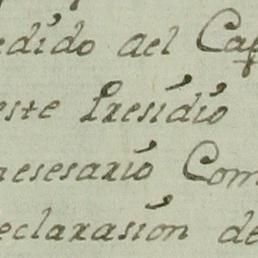 edído del Cap
este Presídíó
nesesarió Com
eclarasión de